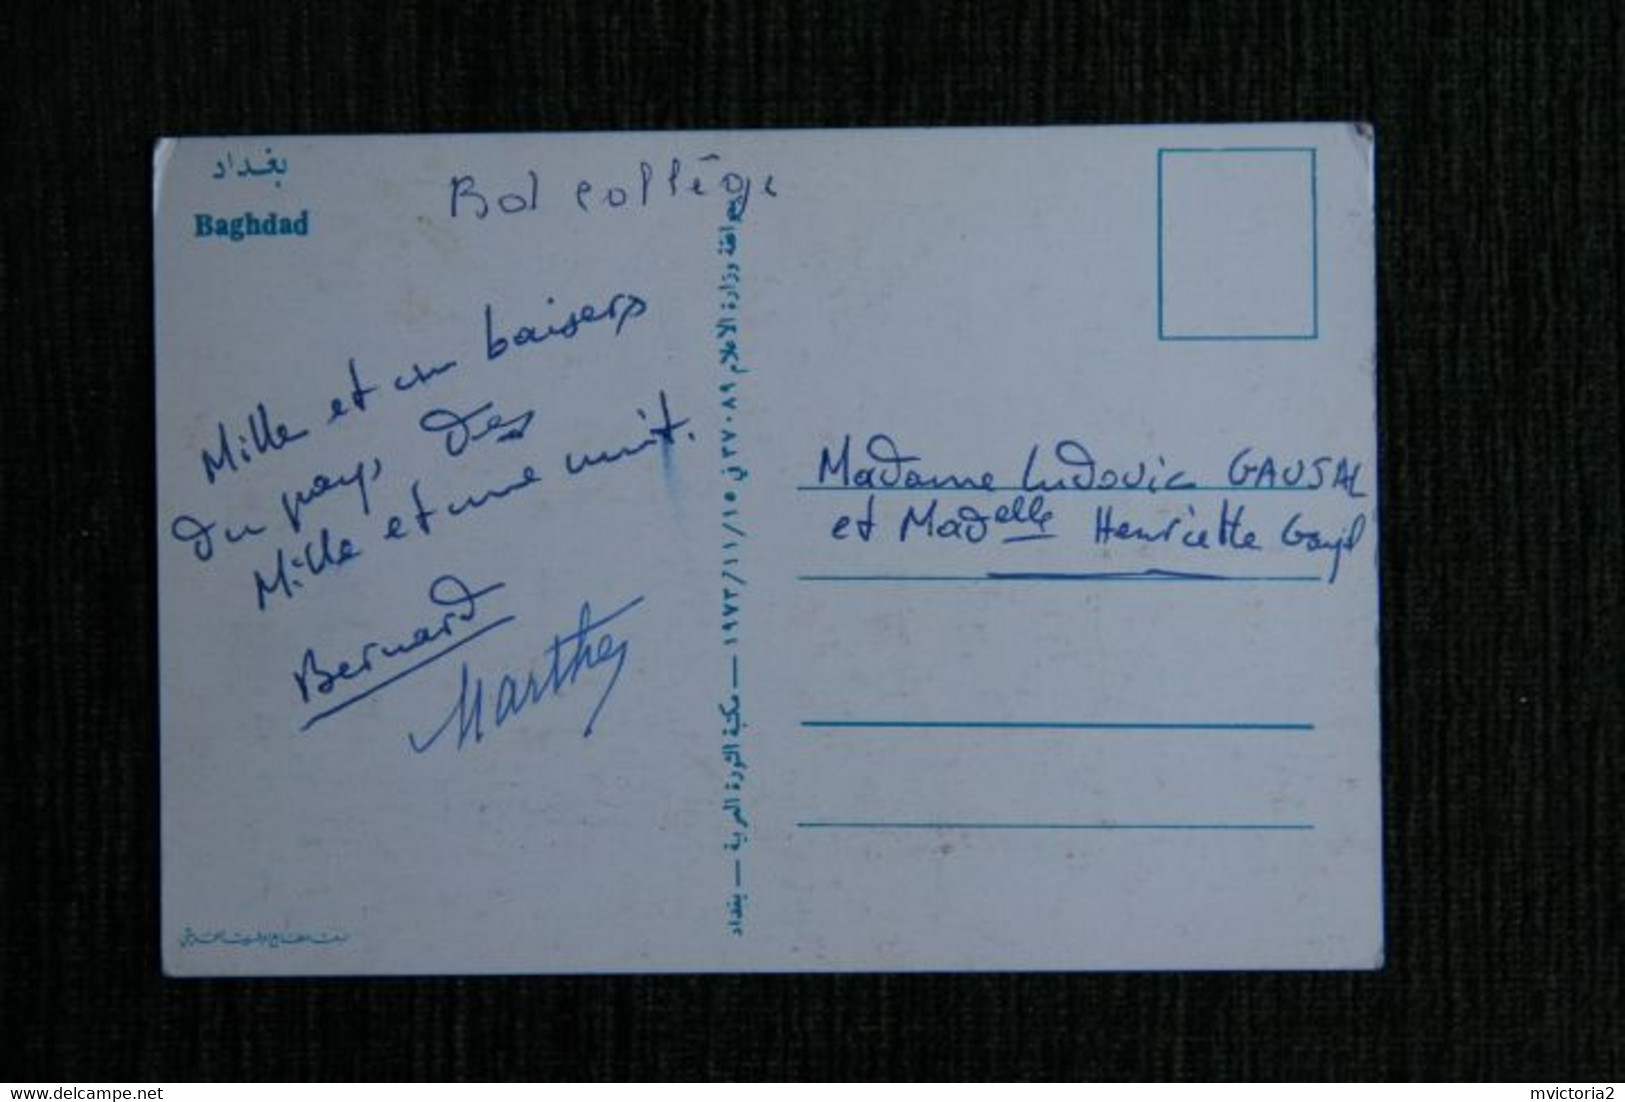 بغداد
Baghdad
Bd collège
Mille et un baisers
du pays des
Mille et une nuit.
Bernard
Marthe
بموافقة وزارة الاعلام ٢٧٠٨٩ في ١٩٧٣/١١/١٥ — مكتبة الثورة العربية — بغداد
Madame Ludovic GAUSAL
et Madelle Henriette
mvictoria2